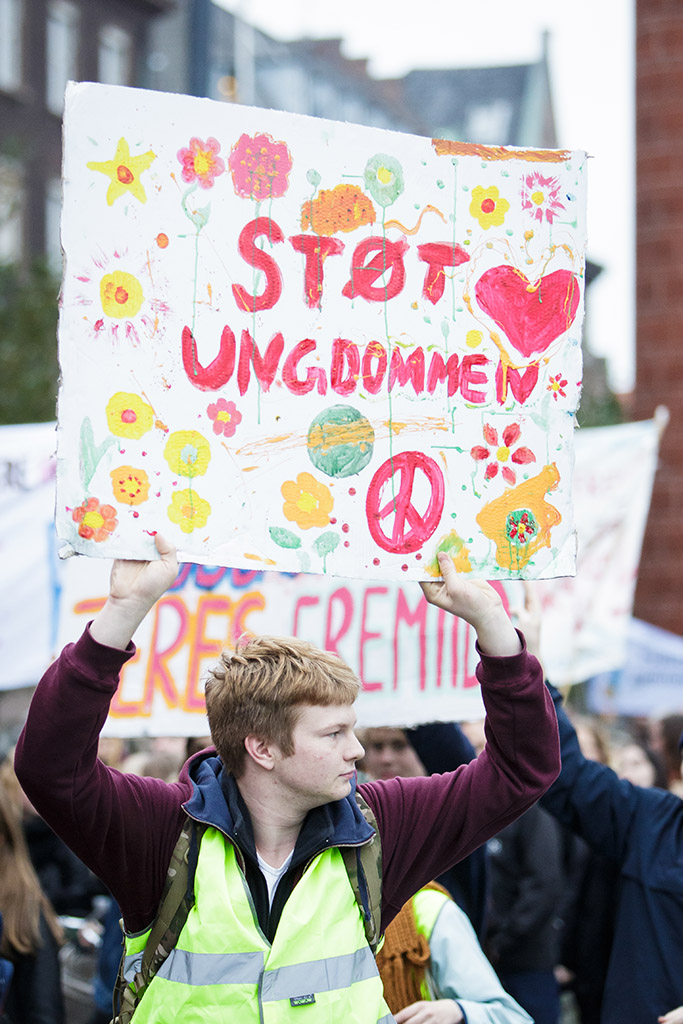 STØT
UNGDOMMEN
ERES FREMTID
WOWOW